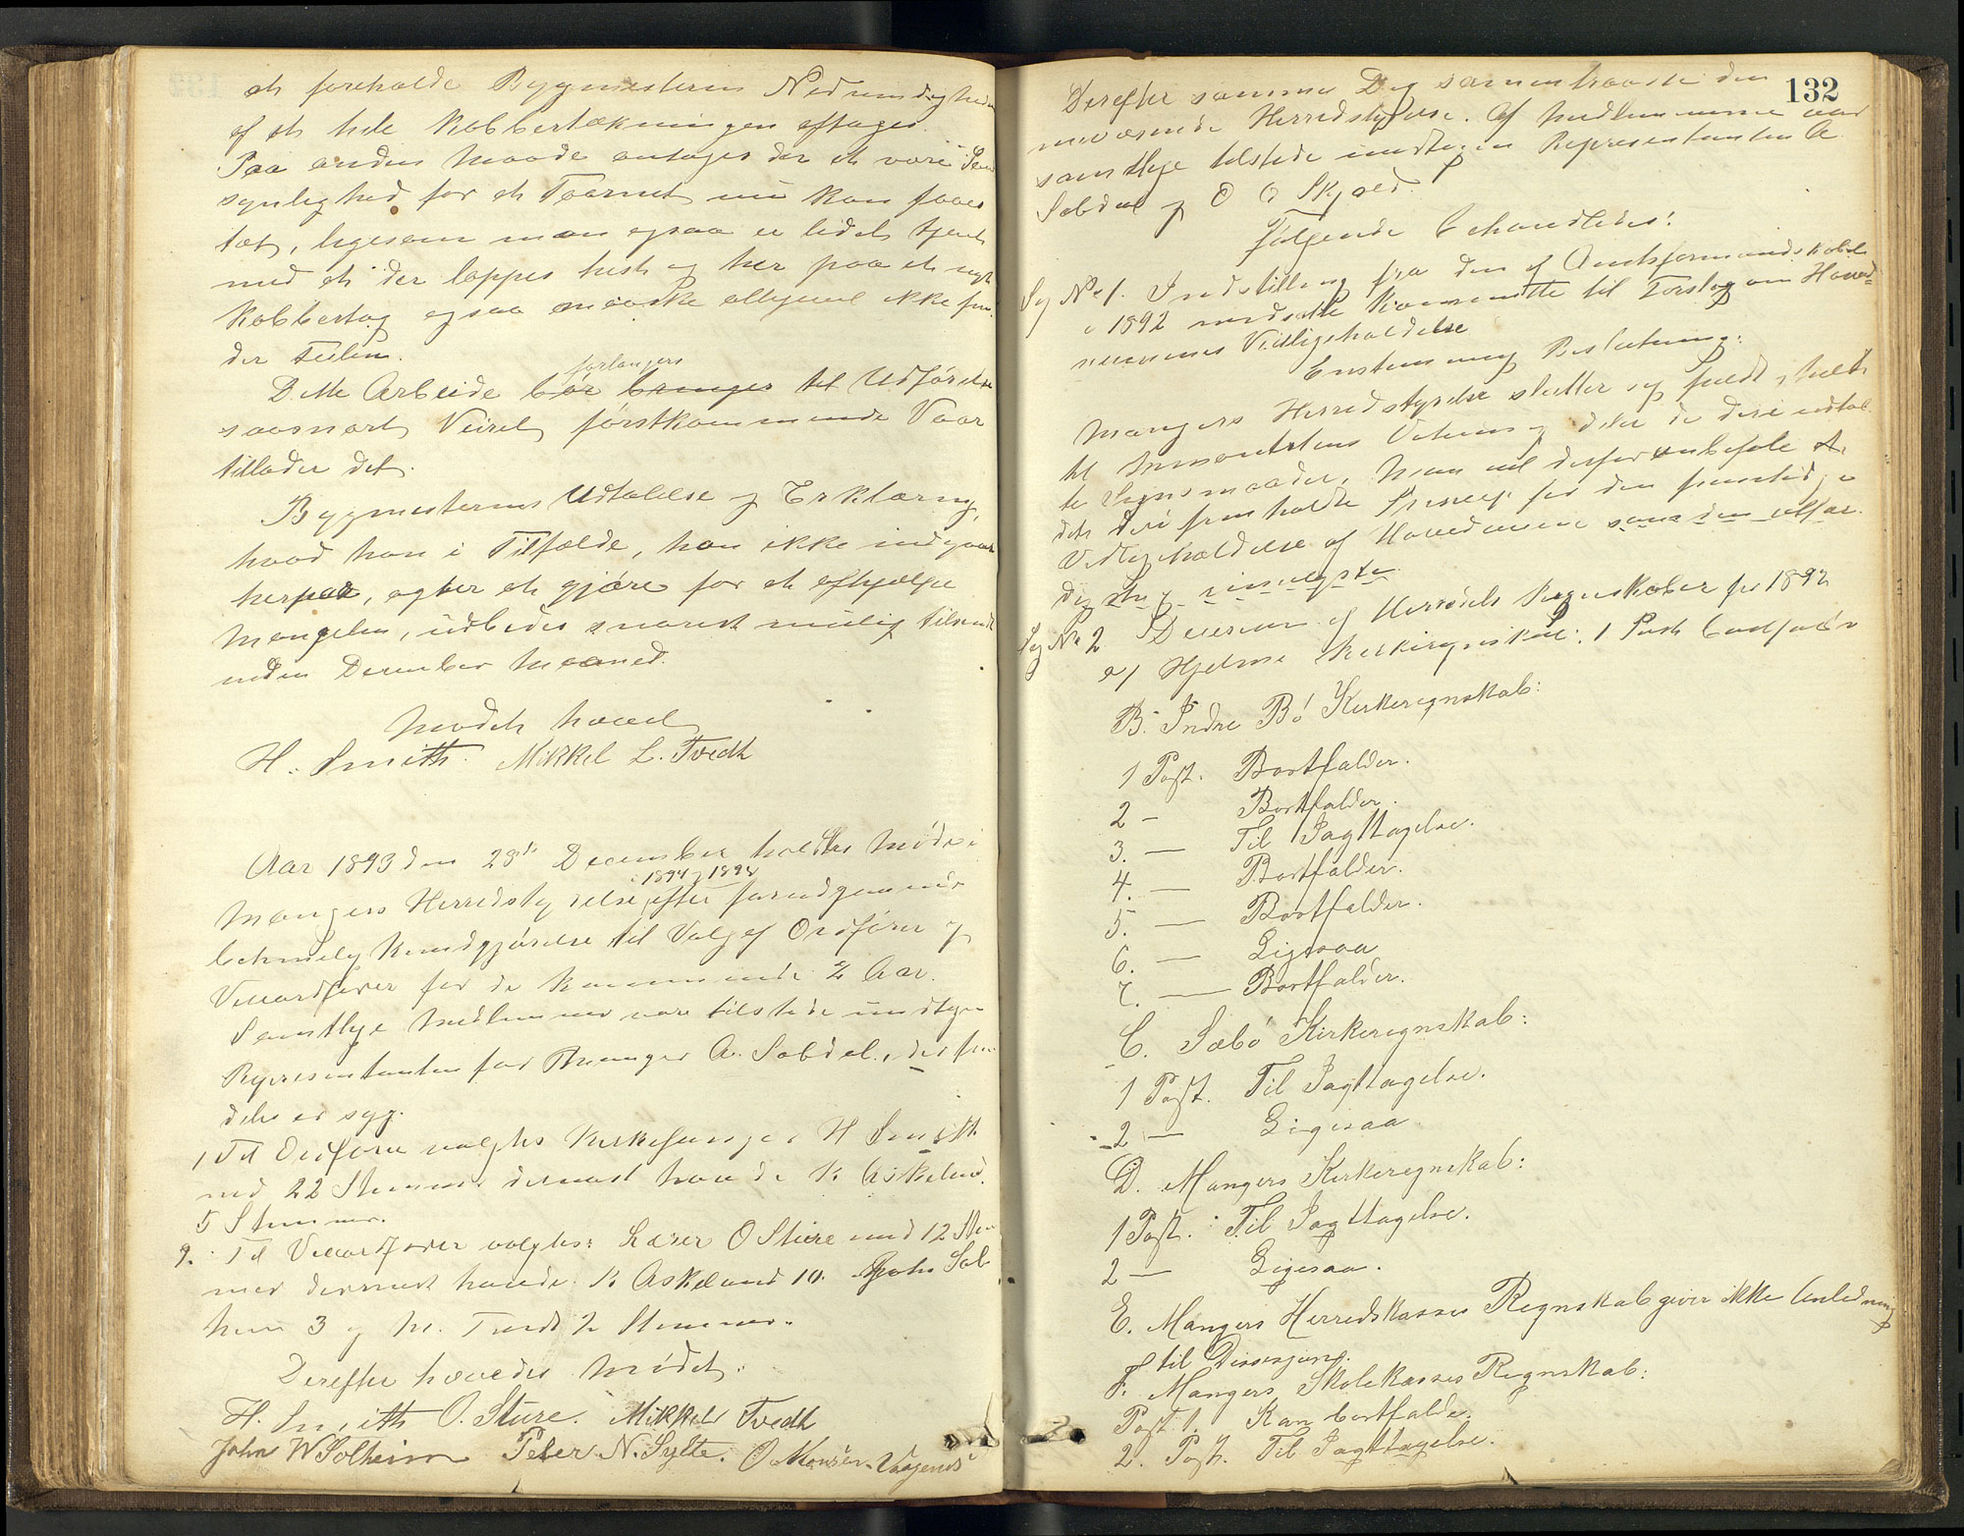 at foreholde Bygmesteren Nødvendigheden
af at hele Kobbertækningen aftages.
Paa anden Maade antages der at være
synlighed for at Taarnet nu kan faaes
tæt, ligesom man ogsaa er lidet tjent
med at der lappes hist og her paa et nyt
Kobbertag ogsaa maaske alligevel ikke fin-
der Feilen.
forlanges
Dette Arbeide bør bringes til Udførelse
saasnart Veiret førstkommende Vaar
tillader det.
Bygmesterens Udtalelse og Erklæring,
hvad han i Tilfælde, han ikke indgaar
herpaa, agter at gjøre for at afhjælpe
Mangelen, udbedes snarest mulig tilsendt
inden December Maaned.
Mødet hævet
H. Smith. Mikkel L. Tvedt
Aar 1893 den 28de December holdtes Møde i
i 1894 og 1895
Mangers Herredstyrelse efter forudgaaende
betimelig Kundgjørelse til Valg af Ordfører og
Viceordfører for de kommende 2 Aar.
Samtlige Medlemmer vare tilstede undtagen
Repræsentanten for Manger A. Sabdal, der frem-
deles er syg.
1 Til Ordfører valgtes Kirkesanger H Smith
med 22 Stemmer dernæst havde K. Askeland
5 Stemmer.
2. Til Viceordfører valgtes: Lærer O Sture med 12 Stem
mer dernæst havde K Askeland 10. John Sol-
heim 3 og M. Tvedt 2 Stemmer.
Derefter hævedes Mødet.
H. Smith O. Sture. Mikkel Tvedt
John W Solheim Peter N. Sylte. O Monsen Vaagenes
132
Derefter samme Dag sammentraadte den
nuværende Herredstyrelse. Af Medlemmerne var
samtlige tilstede undtagen Repræsentanten A.
Sabdal og O O Skjold.
Følgende behandledes:
Sag No 1. Indstilling fra den af Amtsformandskabet
i 1892 nedsatte Kommitte til Forslag om Hoved-
veienes Vedligeholdelse
Enstemmig Beslutning:
Mangers Herredstyrelse slutter sig fuldt og helt
til Ammanuensens og deler de deri udtal
te Synsmaader. Man vil derfor anbefale at
det deri fremholdte Princip for den fremtidige
Vedligeholdelse af Hovedveiene som den retfær-
digste og rimeligste
Sag No 2 Decision af Herredets Regnskaber for 1892
a/ Hjelme Kirkeregnskab: 1 Post bortfalder
B. Indre Bø Kirkeregnskab:
1 Post. Bortfalder.
2 — Bortfalder.
3. — Til Iagttagelse.
4. — Bortfalder.
5. — Bortfalder.
6. — Ligesaa
7. — Bortfalder.
C. Sæbø Kirkeregnskab:
1 Post. Til Iagttagelse.
2 — Ligesaa
D. Mangers Kirkeregnskab:
1 Post. Til Iagttagelse.
2 — Ligesaa.
E. Mangers Herredskasses Regnskab giver ikke Anledning
til Decisjoner.
F. Mangers Skolekasses Regnskab:
Post 1. Kan bortfalde.
2. Post. Til Iagttagelse.